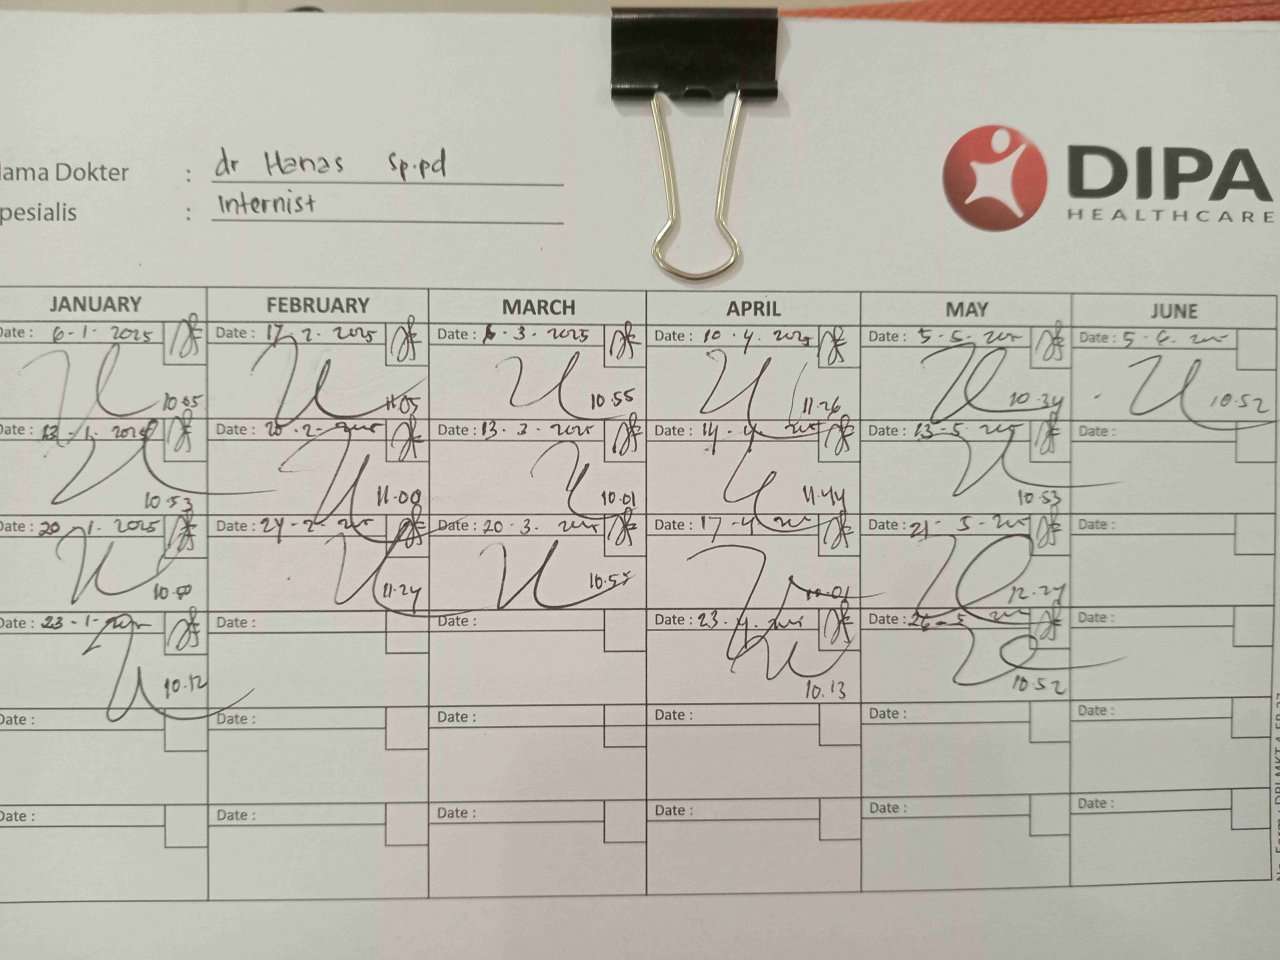 ama Dokter : dr Hanas Sp.pd
pesialis : Internist
DIPA
HEALTHCARE
JANUARY FEBRUARY MARCH APRIL MAY JUNE
Date : 6-1-2025 Date : 17-2-2025 Date : 6-3-2025 Date : 10-4-2025 Date : 5-5- Date : 5-6-
10.05 11.05 10.55 11.26 10.34 10.52
Date : 13-1-2025 Date : 20-2- Date : 13-3-2025 Date : 14-4- Date : 13-5- Date :
10.53 11.00 10.01 11.44 10.53
Date : 20-1-2025 Date : 24-2- Date : 20-3- Date : 17-4- Date : 21-5- Date :
10.50 11.24 10.55 10.01 12.27
Date : 23-1- Date : Date : Date : 23-4- Date : 26-5- Date :
10.12 10.13 10.52
Date : Date : Date : Date : Date : Date :
Date : Date : Date : Date : Date : Date :